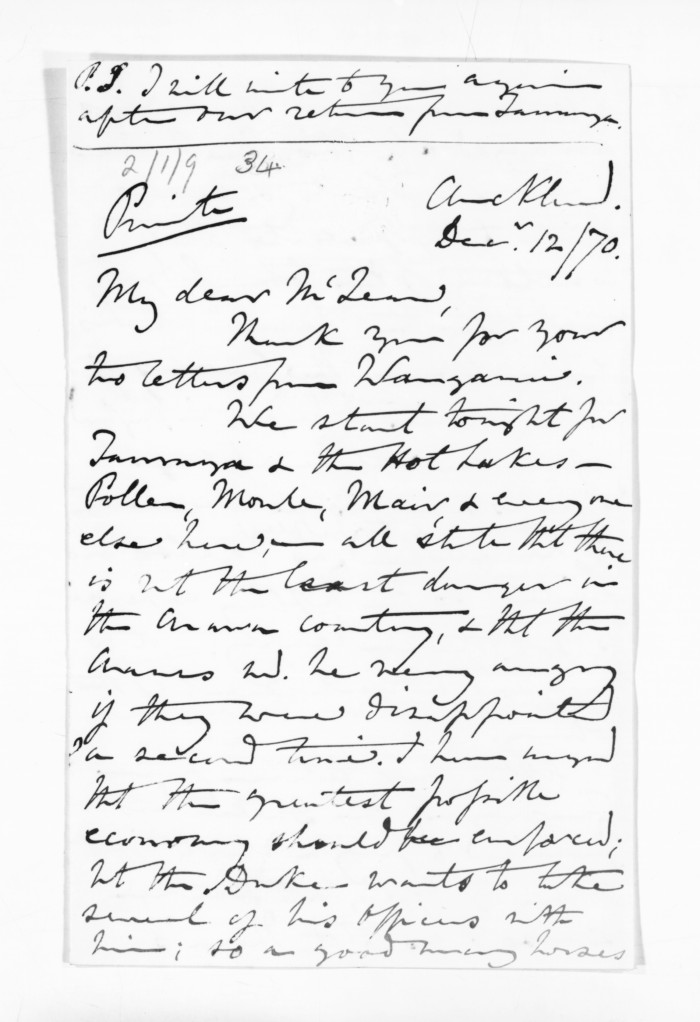 P.S. I will write to you again
after our return from Tauranga.
2/1/9 34
Private
Auckland.
Decr. 12/70.
My dear McLean,
Thank you for your
two letters from Wanganui.
We start tonight for
Tauranga & the Hot Lakes —
Pollen, Moule, Mair, & everyone
else here, — all state that there
is not the least danger in
the Arawa country, & that the
Arawas wd. be very angry
if they were disappointed
a second time. I have urged
that the greatest possible
economy should be enforced;
but the Duke wants to take
several of his Officers with
him; so a good many horses